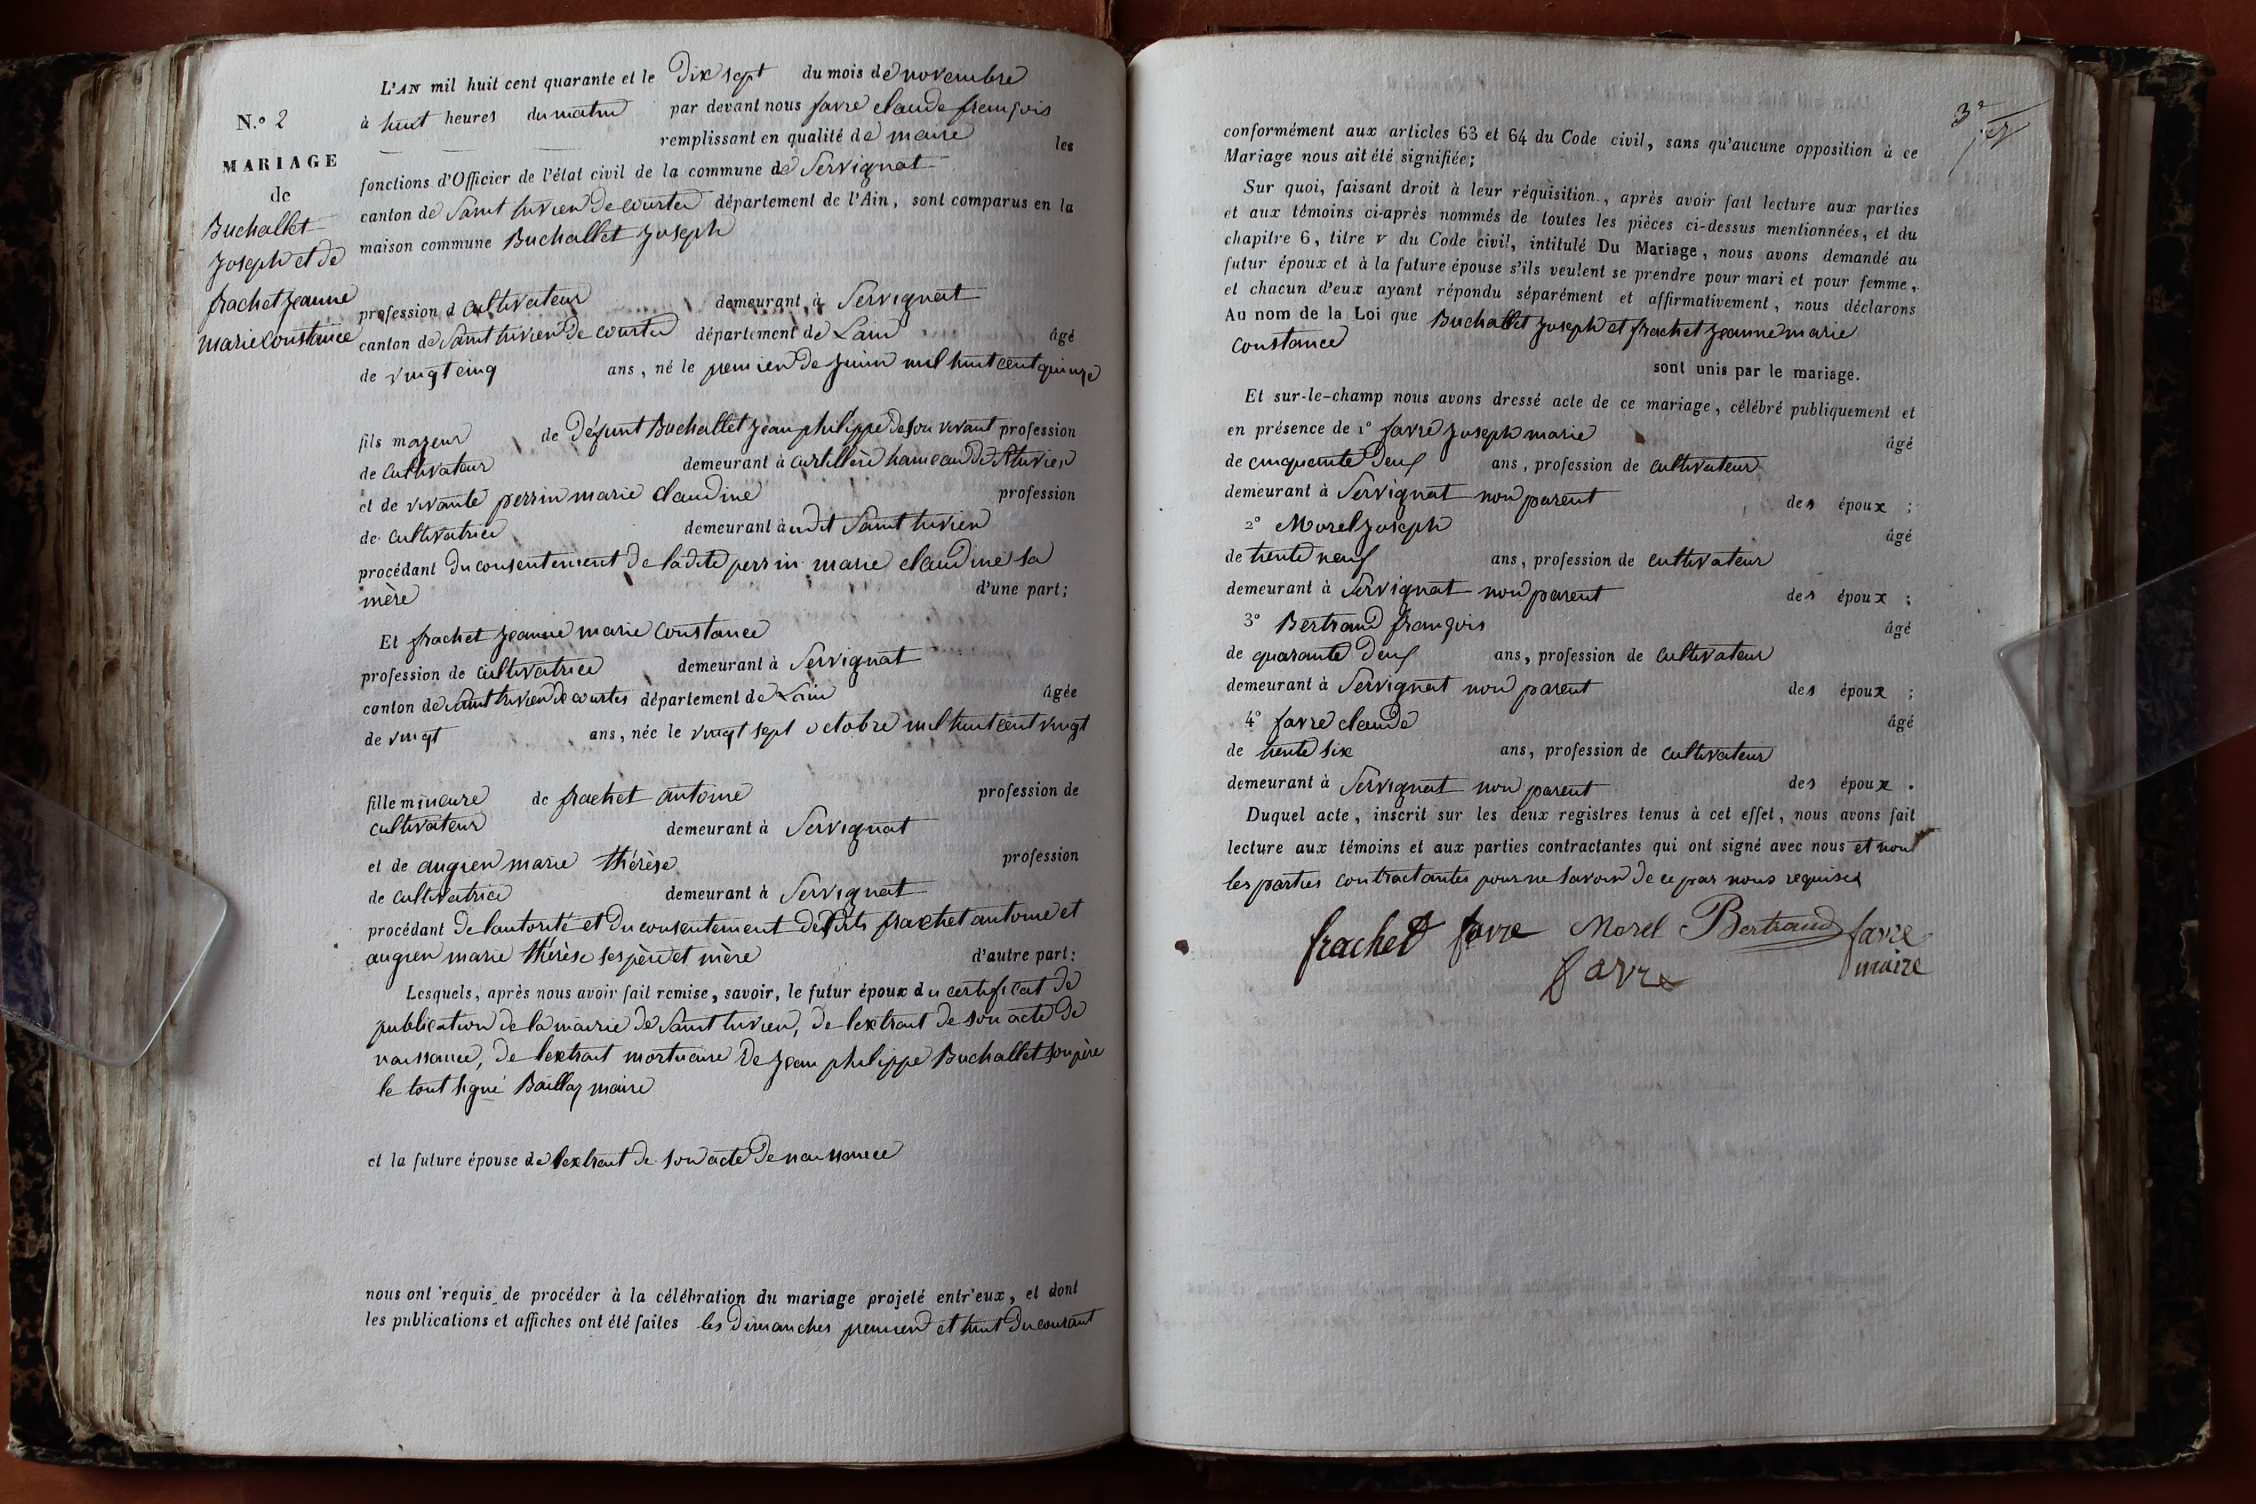 N.º 2
MARIAGE
de
Buchallet
Joseph et de
frachet Jeanne
marie Constance
L'AN mil huit cent quarante et le Dix sept du mois de novembre
à huit heures du matin par devant nous favre claude françois
remplissant en qualité de maire les
fonctions d'Officier de l'état civil de la commune de Servignat
canton de Saint trivier De courtes département de l'Ain, sont comparus en la
maison commune Buchallet Joseph
profession d cultivateur demeurant à Servignat
canton de Saint trivier De courtes département de Lain âgé
de vingt cinq ans, né le premier De Juin mil huit cent quinze
fils majeur de défunt Buchallet Jean philippe De son vivant profession
de cultivateur demeurant à curtillère hameau De St trivier
et de vivante perrin marie claudine profession
de cultivatrice demeurant à udit Saint trivier
procédant Du consentement De ladite perrin marie claudine sa
mère d'une part;
Et frachet Jeanne marie Constance
profession de cultivatrice demeurant à Servignat
canton de Saint trivier De courtes département de Lain âgée
de vingt ans, née le vingt sept octobre mil huit cent vingt
fille mineure de frachet antoine profession de
cultivateur demeurant à Servignat
et de augien marie thérèse profession
de cultivatrice demeurant à Servignat
procédant De lautorité et Du consentement Desdits frachet antoine et
augien marie thérèse ses père et mère d'autre part:
Lesquels, après nous avoir fait remise, savoir, le futur époux du certificat De
publication De la mairie De Saint trivier, De lextrait De son acte De
naissance, De lextrait mortuaire De Jean philippe Buchallet son père
le tout signé Baillaz maire
et la future épouse de lextrait De son acte De naissance
nous ont requis de procéder à la célébration du mariage projeté entr'eux, et dont
les publications et affiches ont été faites les Dimanches premier et huit Du courant
3e
conformément aux articles 63 et 64 du Code civil, sans qu'aucune opposition à ce
Mariage nous ait été signifiée;
Sur quoi, faisant droit à leur réquisition., après avoir fait lecture aux parties
et aux témoins ci-après nommés de toutes les pièces ci-dessus mentionnées, et du
chapitre 6, titre v du Code civil, intitulé Du Mariage, nous avons demandé au
futur époux et à la future épouse s'ils veulent se prendre pour mari et pour femme,
et chacun d'eux ayant répondu séparément et affirmativement, nous déclarons
Au nom de la Loi que Buchallet Joseph et frachet Jeanne marie
Constance
sont unis par le mariage.
Et sur-le-champ nous avons dressé acte de ce mariage, célébré publiquement et
en présence de 1º favre Joseph marie âgé
de cinquante Deux ans, profession de cultivateur
demeurant à Servignat non parent des époux;
2º Morel Joseph âgé
de trente neuf ans, profession de cultivateur
demeurant à Servignat non parent des époux;
3º Bertrand françois âgé
de quarante Deux ans, profession de cultivateur
demeurant à Servignat non parent des époux;
4º favre claude âgé
de trente six ans, profession de cultivateur
demeurant à Servignat non parent des époux.
Duquel acte, inscrit sur les deux registres tenus à cet effet, nous avons fait
lecture aux témoins et aux parties contractantes qui ont signé avec nous et non
les parties contractantes pour ne savoir De ce par nous requises
frachet favre Morel Bertrand favre
favre maire